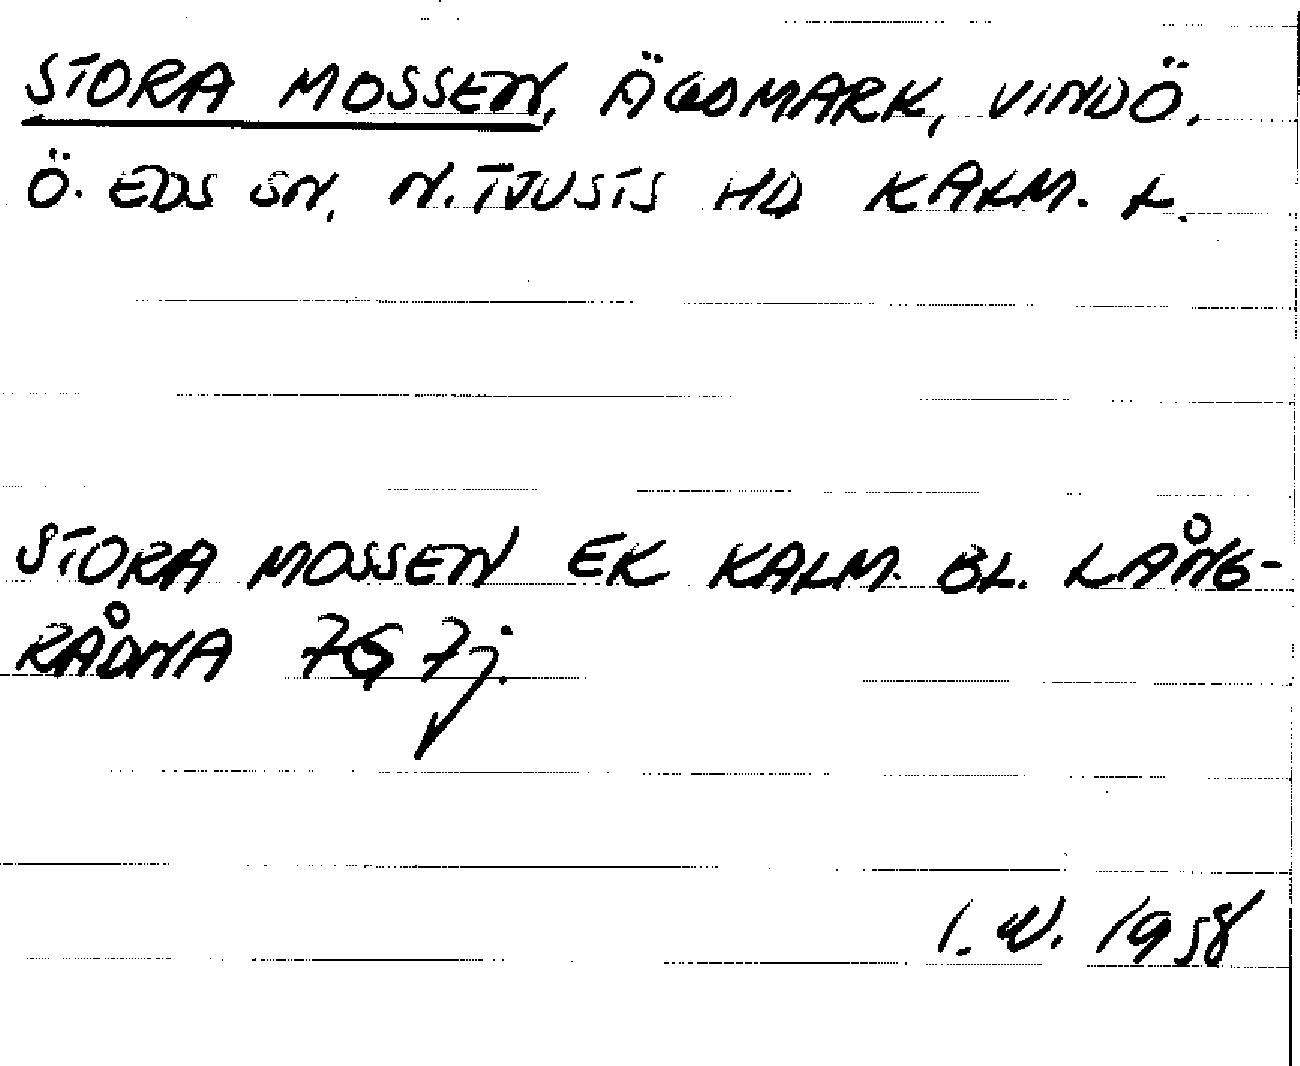 STORA MOSSEN, ÄGOMARK, VINDÖ,
Ö. EDS SN, N. TJUSTS HD KALM. L.
STORA MOSSEN EK KALM. BL. LÅNG-
RÅDNA 7G 7j.
I. W. 1958